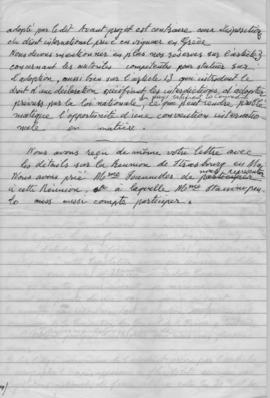 adopté par ledit Avant projet est contraire aux dispositions
du droit international privé en vigueur en Grèce.
Nous devons mentionner en plus nos réserves sur l'article 3
concernant les autorités compétentes pour statuer sur
l'adoption, aussi bien sur l'article 13 que introduit le
droit d'une déclaration spécifiant les interdictions d'adopter
prévues par la loi nationale, ce que peut rendre problé
matique l'opportunité d'une convention internatio
nale en matière.
Nous avons reçu de même votre lettre avec
les détails sur la Réunion de Strasbourg en Mai
nous représenter
Nous avons prié Mme de participer
à cette Réunion à laquelle Mme
lo aussi compte participer.